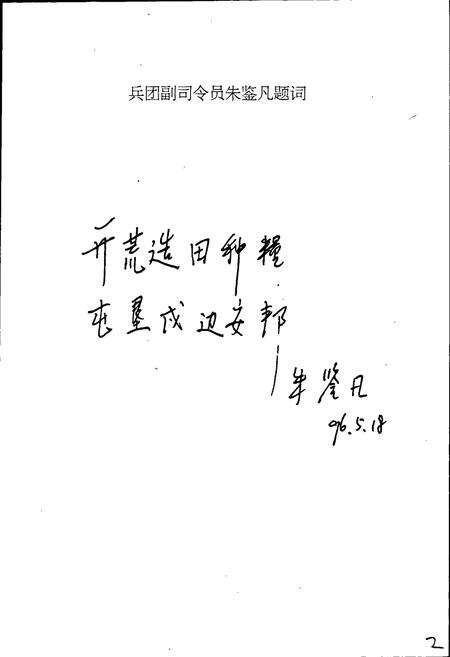 兵团副司令员朱鉴凡题词
开荒造田种糧
屯垦戍边安邦
朱鉴凡
96.5.18
2